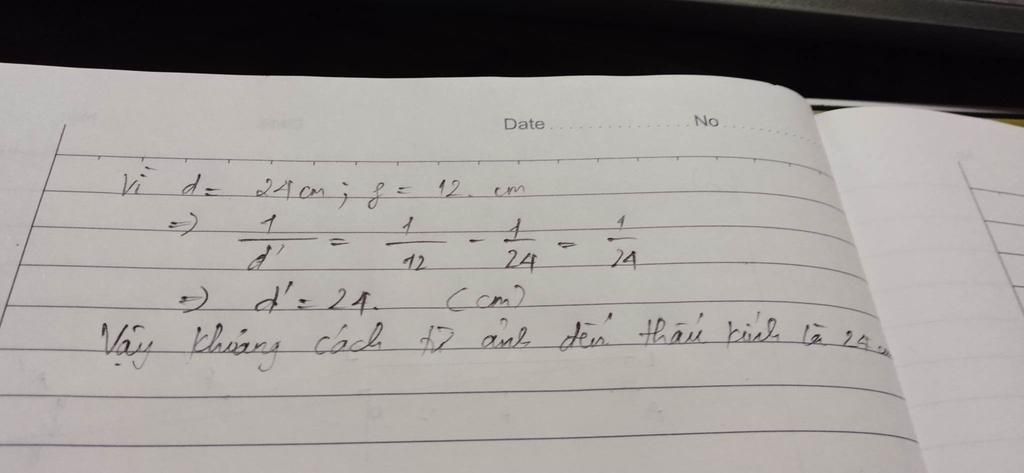 Date ................ No ............
Vì d = 24 cm ; f = 12. cm
=> 1/d' = 1/12 - 1/24 = 1/24
=> d' = 24. (cm)
Vậy khoảng cách từ ảnh đến thấu kính là 24 cm